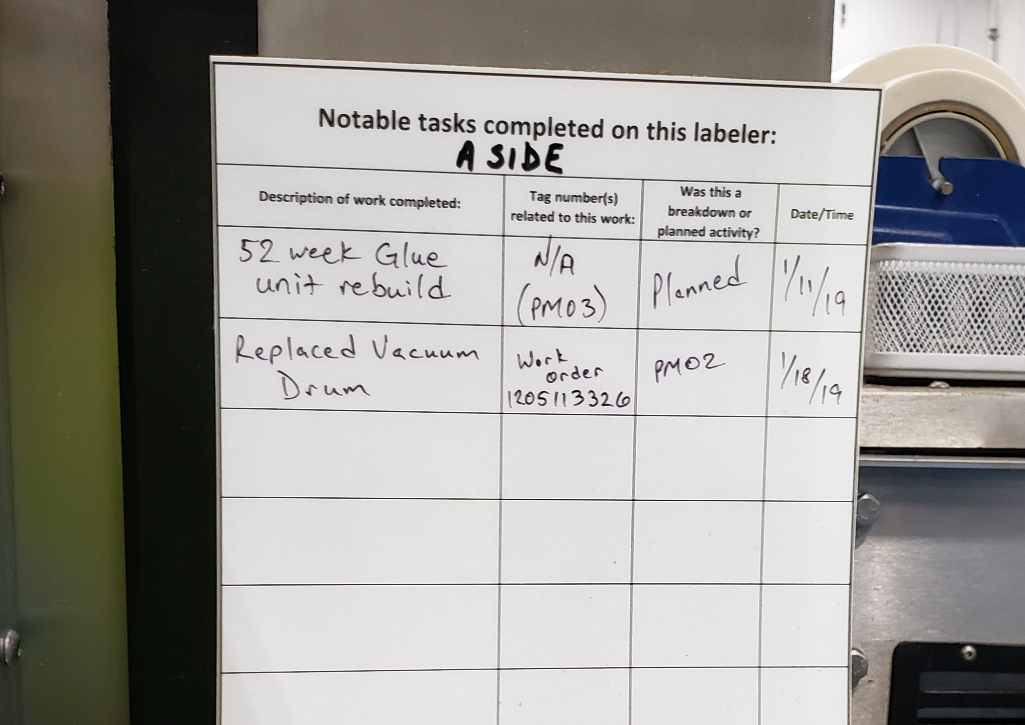 Notable tasks completed on this labeler:
A SIDE
Description of work completed:
Tag number(s)
related to this work:
Was this a
breakdown or
planned activity?
Date/Time
52 week Glue
unit rebuild
N/A
(PM03)
Planned
1/11/19
Replaced Vacuum
Drum
Work
order
1205113326
PM02
1/18/19